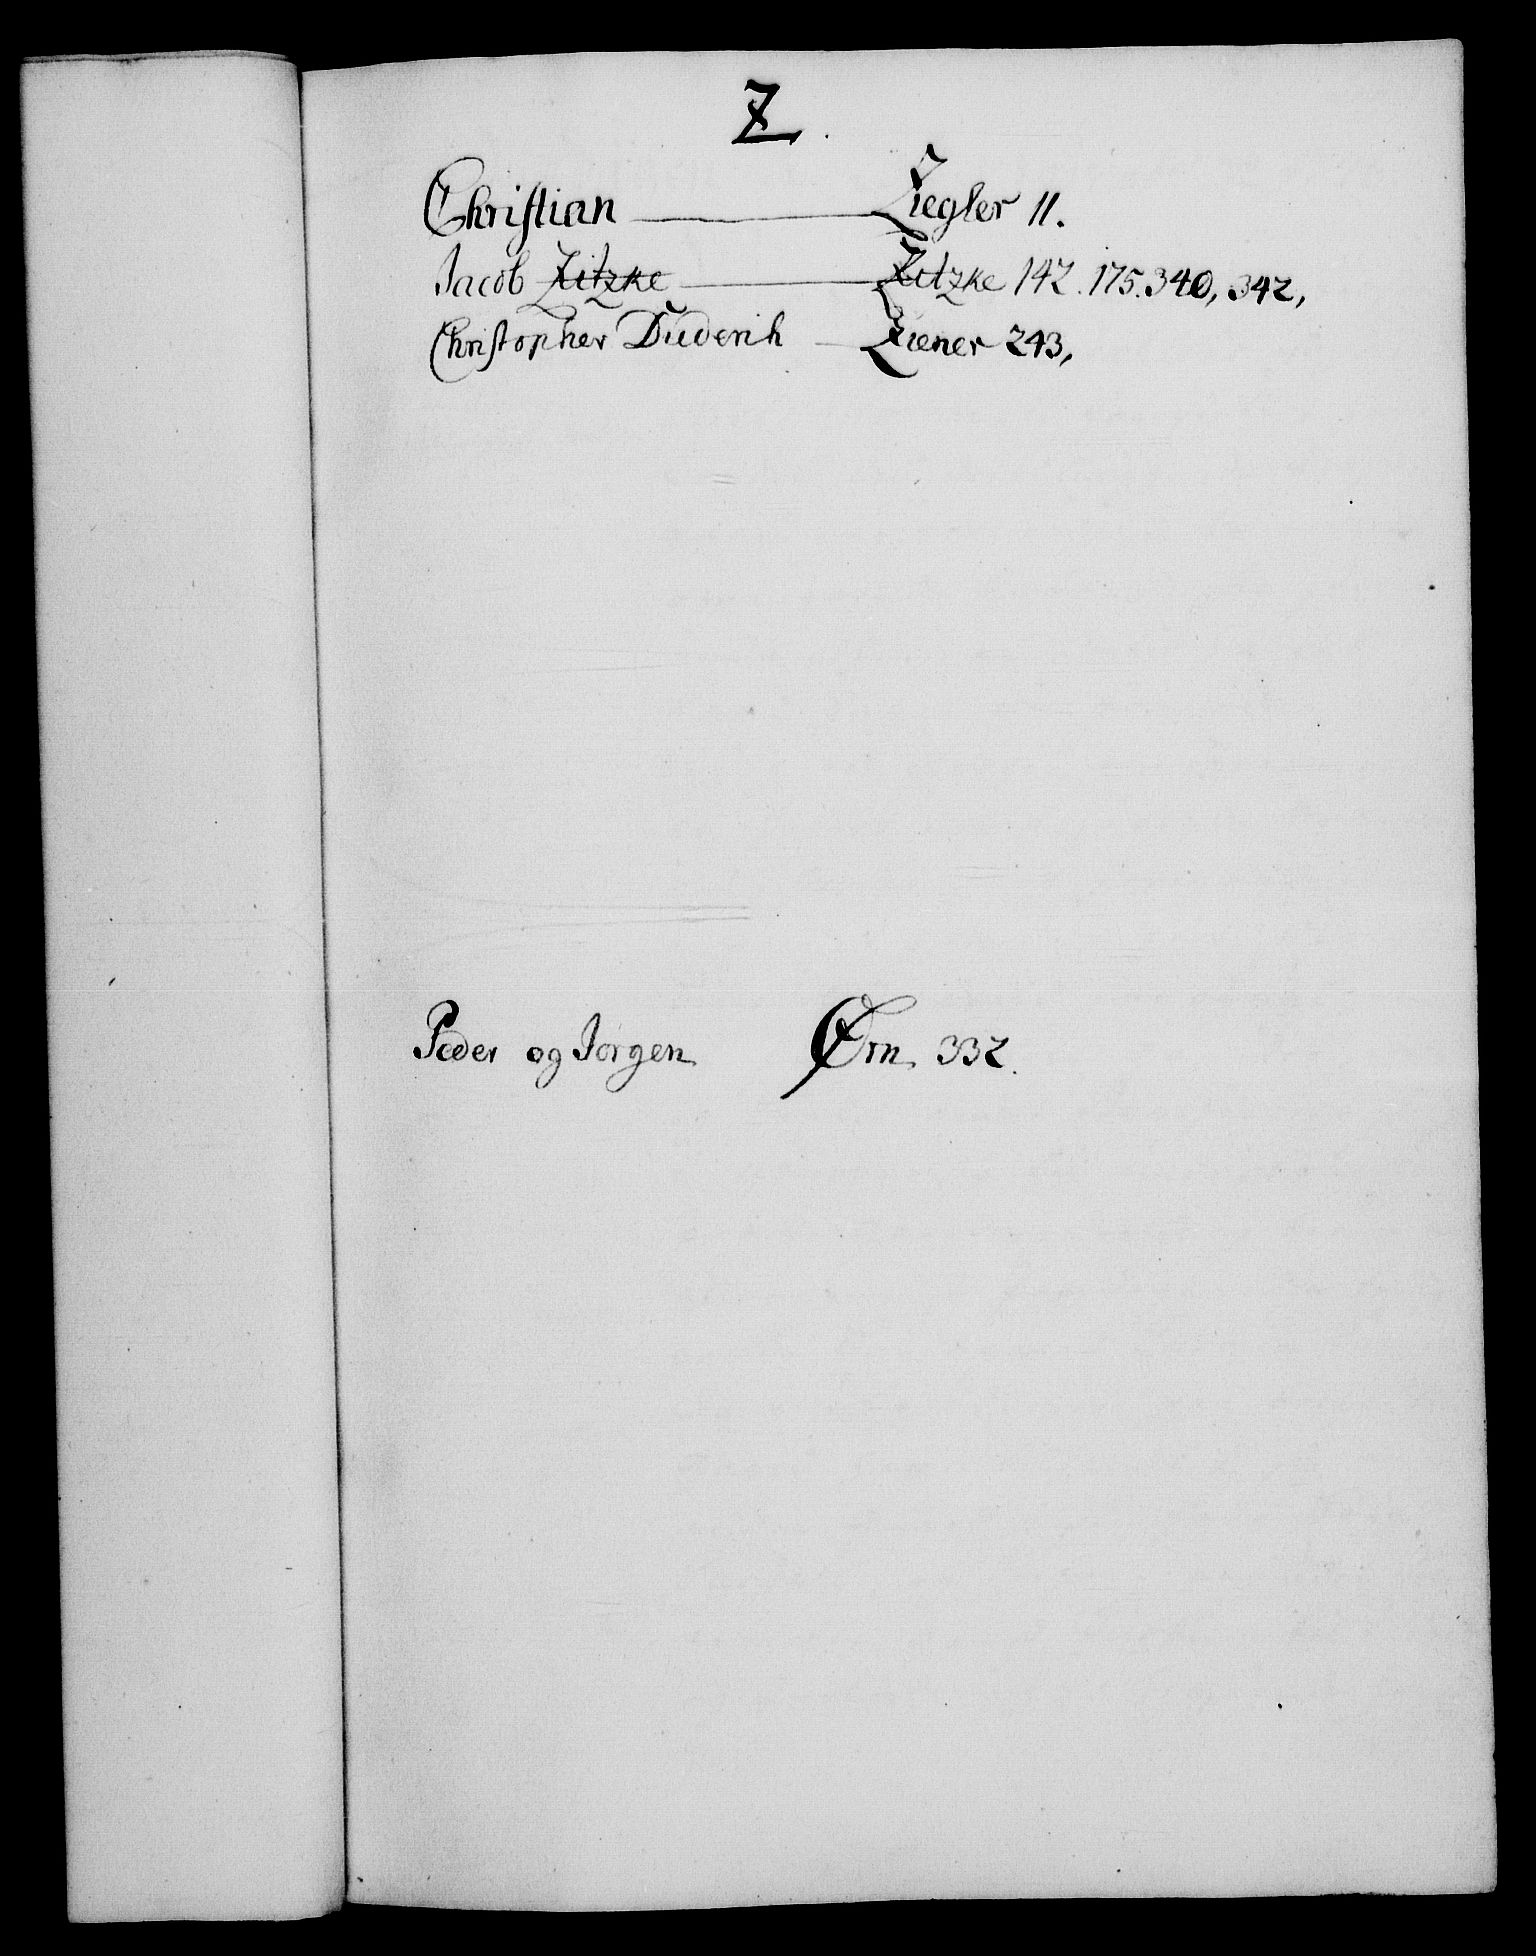 Z.
Christian Ziegler 11.
Jacob Zitzke Zitzke 142. 175. 340, 342,
Christopher Diederih Ziener 243,
Peder og Jörgen Ørn 332.